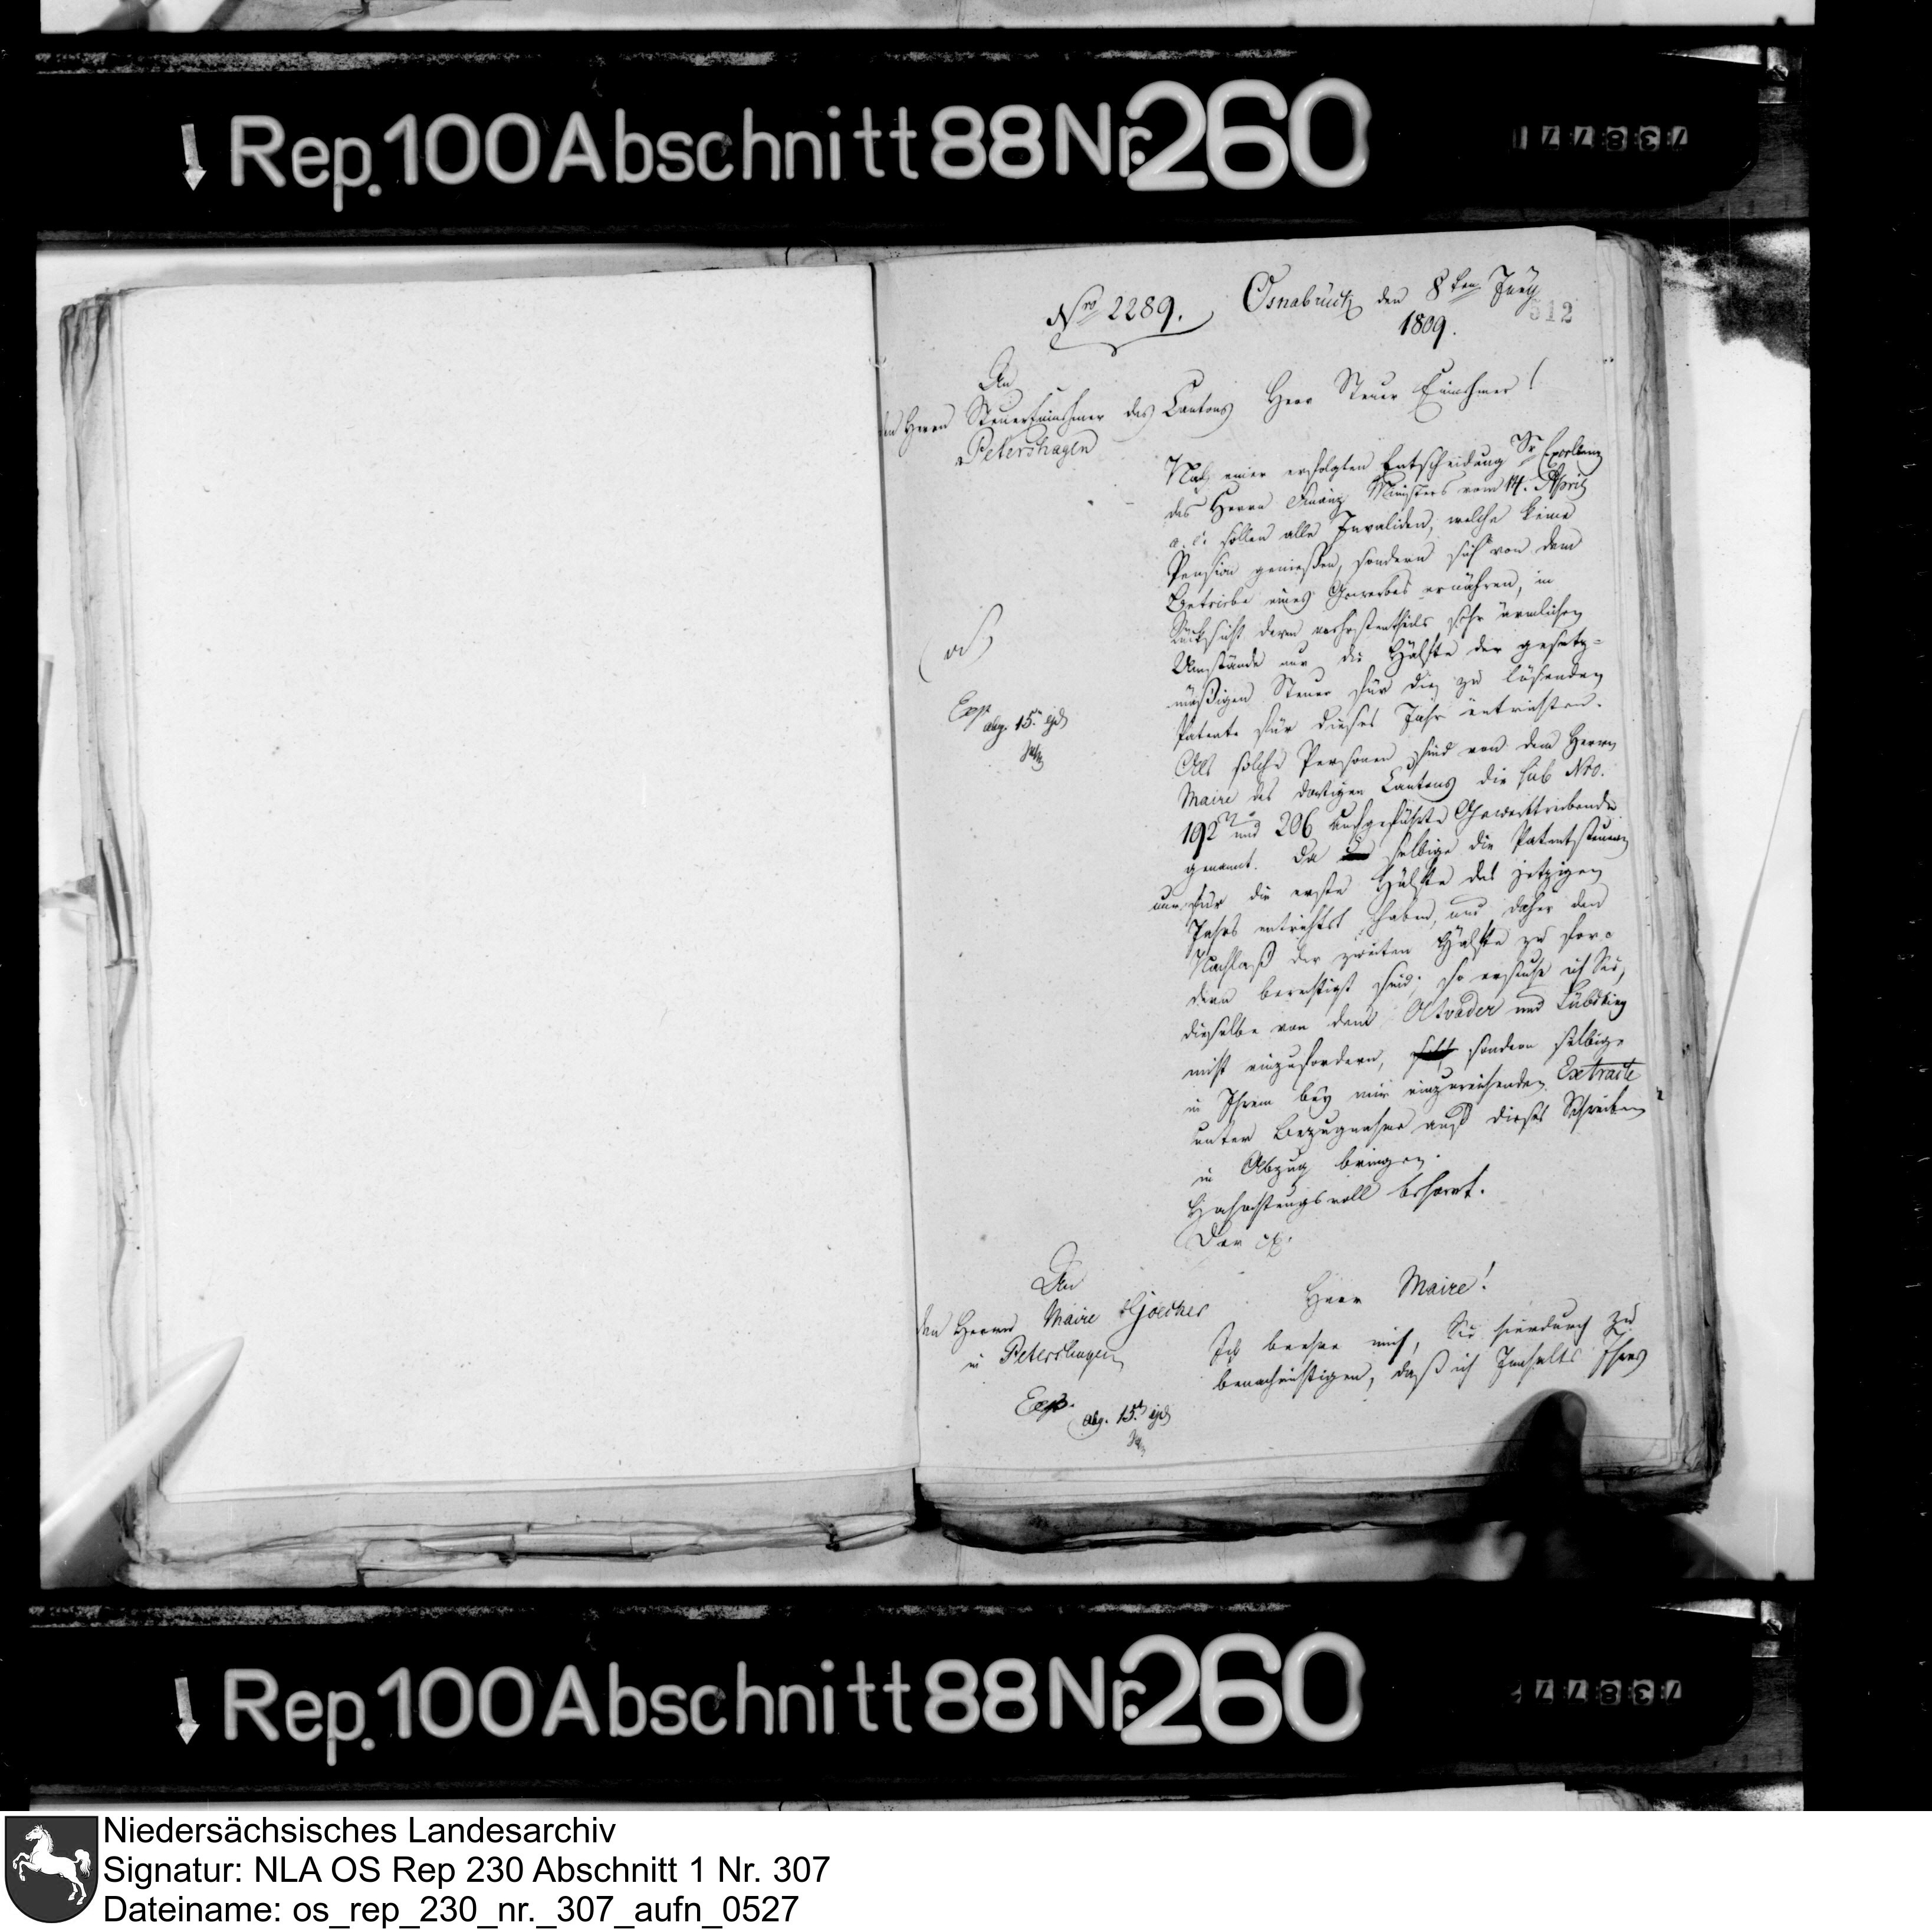 Rep. 100 Abschnitt 88 Nr. 260
73877
Nro 2289. Osnabrück den 8ten Juny
1809.
512
An
den Herrn Steuereinnehmer des Cantons
Petershagen
Herr Steuer Einnehmer!
Nach einer erfolgten Entscheidung Sr Excellenz
des Herrn Finanz Ministers vom 14. April
a. c. sollen alle Invaliden, welche keine
Pension genießen, sondern sich von dem
Betriebe eines Gewerbes ernähren, in
Rücksicht deren mehrstentheils sehr ärmlichen
Umstände nur die Hälfte der gesetz=
mäßigen Steuer für die zu lösenden
Patente für dieses Jahr entrichten.
Als solche Personen sind von dem Herrn
Maire des dortigen Cantons die sub Nro.
192 und 206 aufgeführte Gewerbtreibende
genannt. Da selbige die Patentsteuer
nur für die erste Hälfte des jetzigen
Jahrs entrichtet haben, und daher den
Nachlaß der zweiten Hälfte zu for=
dern berechtigt sind; so ersuche ich Sie,
dieselbe von dem Altvater und Lübking
nicht einzufordern, sondern selbige
in Ihrem bey mir einzureichenden Extracte
unter Bezugnahme auf dieses Schreiben
in Abzug bringen.
Hochachtungsvoll beharrt.
Der
Exp.
abg. 15. ejd
An
den Herrn Maire
in Petershagen
Exp.
abg. 15. ejd
Herr Maire!
Ich beehre mich, Sie hierdurch zu
benachrichtigen, daß ich Innhalts Ihres
Rep. 100 Abschnitt 88 Nr. 260
73877
Niedersächsisches Landesarchiv
Signatur: NLA OS Rep 230 Abschnitt 1 Nr. 307
Dateiname: os_rep_230_nr._307_aufn_0527